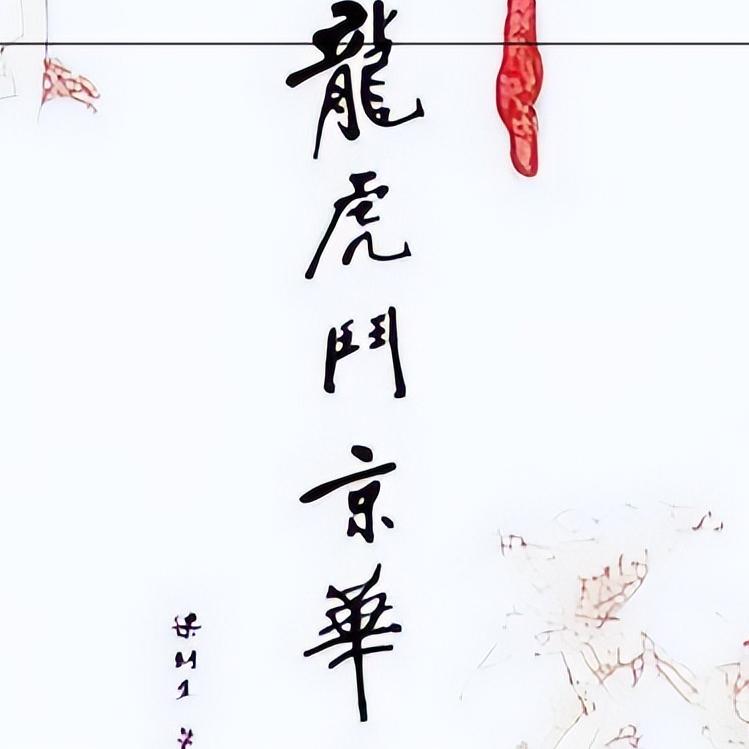 龍虎鬥京華